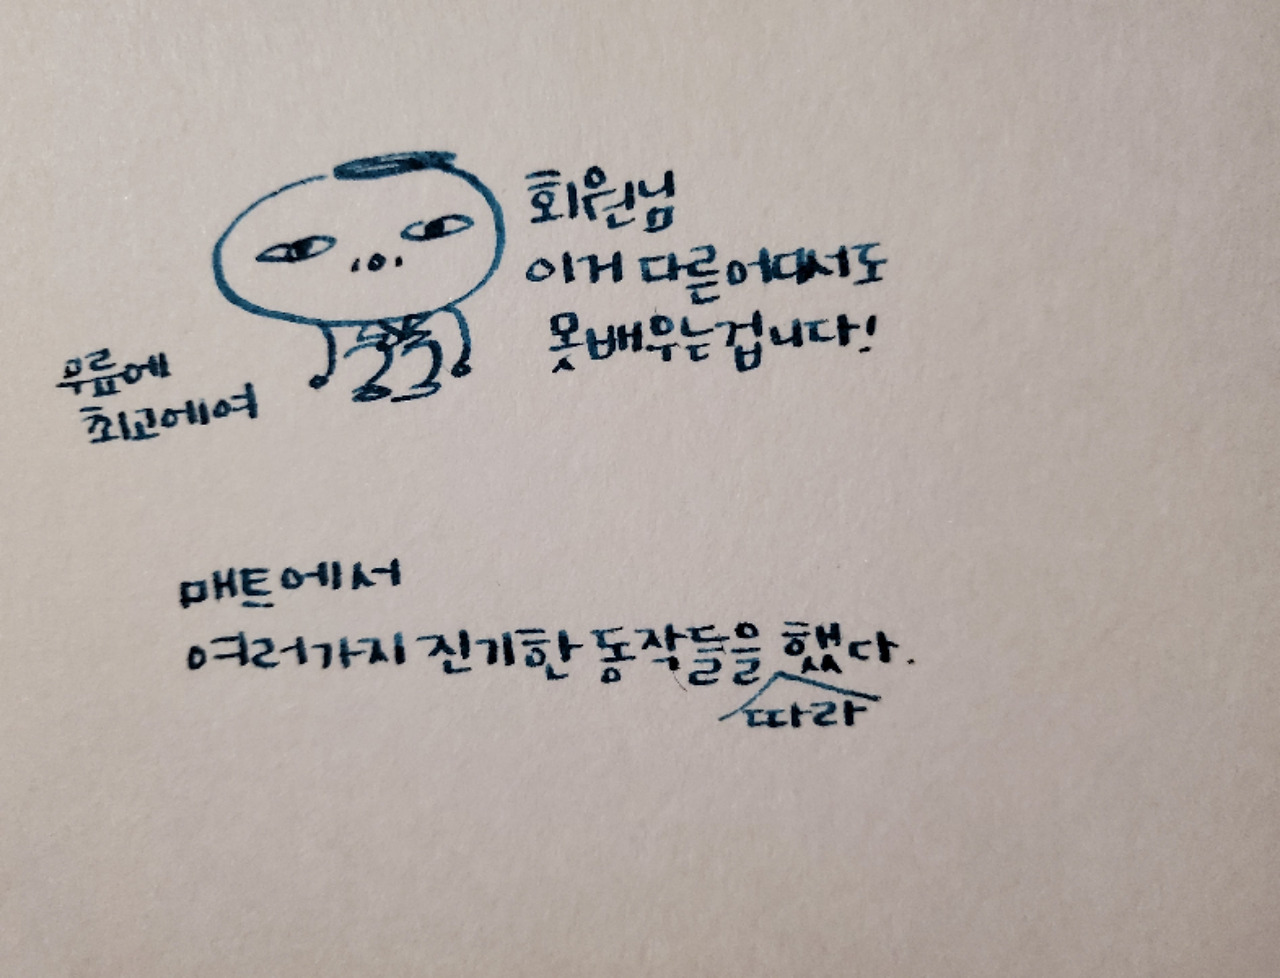 회원님
이거 다른 어대서도
못배우는겁니다!
무릎에
최고에여
매트에서
여러가지 진기한 동작들을 했다.
따라